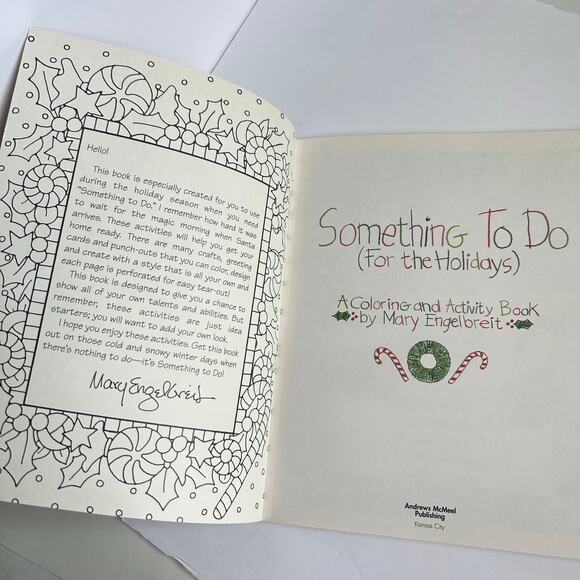 Hello!
This book is especially created for you to use
during the holiday season when you need
"Something to Do." I remember how hard it was
to wait for the magic morning when Santa
arrives. These activities will help you get your
home ready. There are many crafts, greeting
cards and punch-outs that you can color, design
and create with a style that is all your own and
each page is perforated for easy tear-out!
This book is designed to give you a chance to
show all of your own talents and abilities. But
remember, these activities are just idea
starters; you will want to add your own look.
I hope you enjoy these activities. Get this book
out on those cold and snowy winter days when
there's nothing to do—it's Something to Do!
Mary Engelbreit
Something To Do
(For the Holidays)
A Coloring and Activity Book
by Mary Engelbreit
Andrews McMeel
Publishing
Kansas City